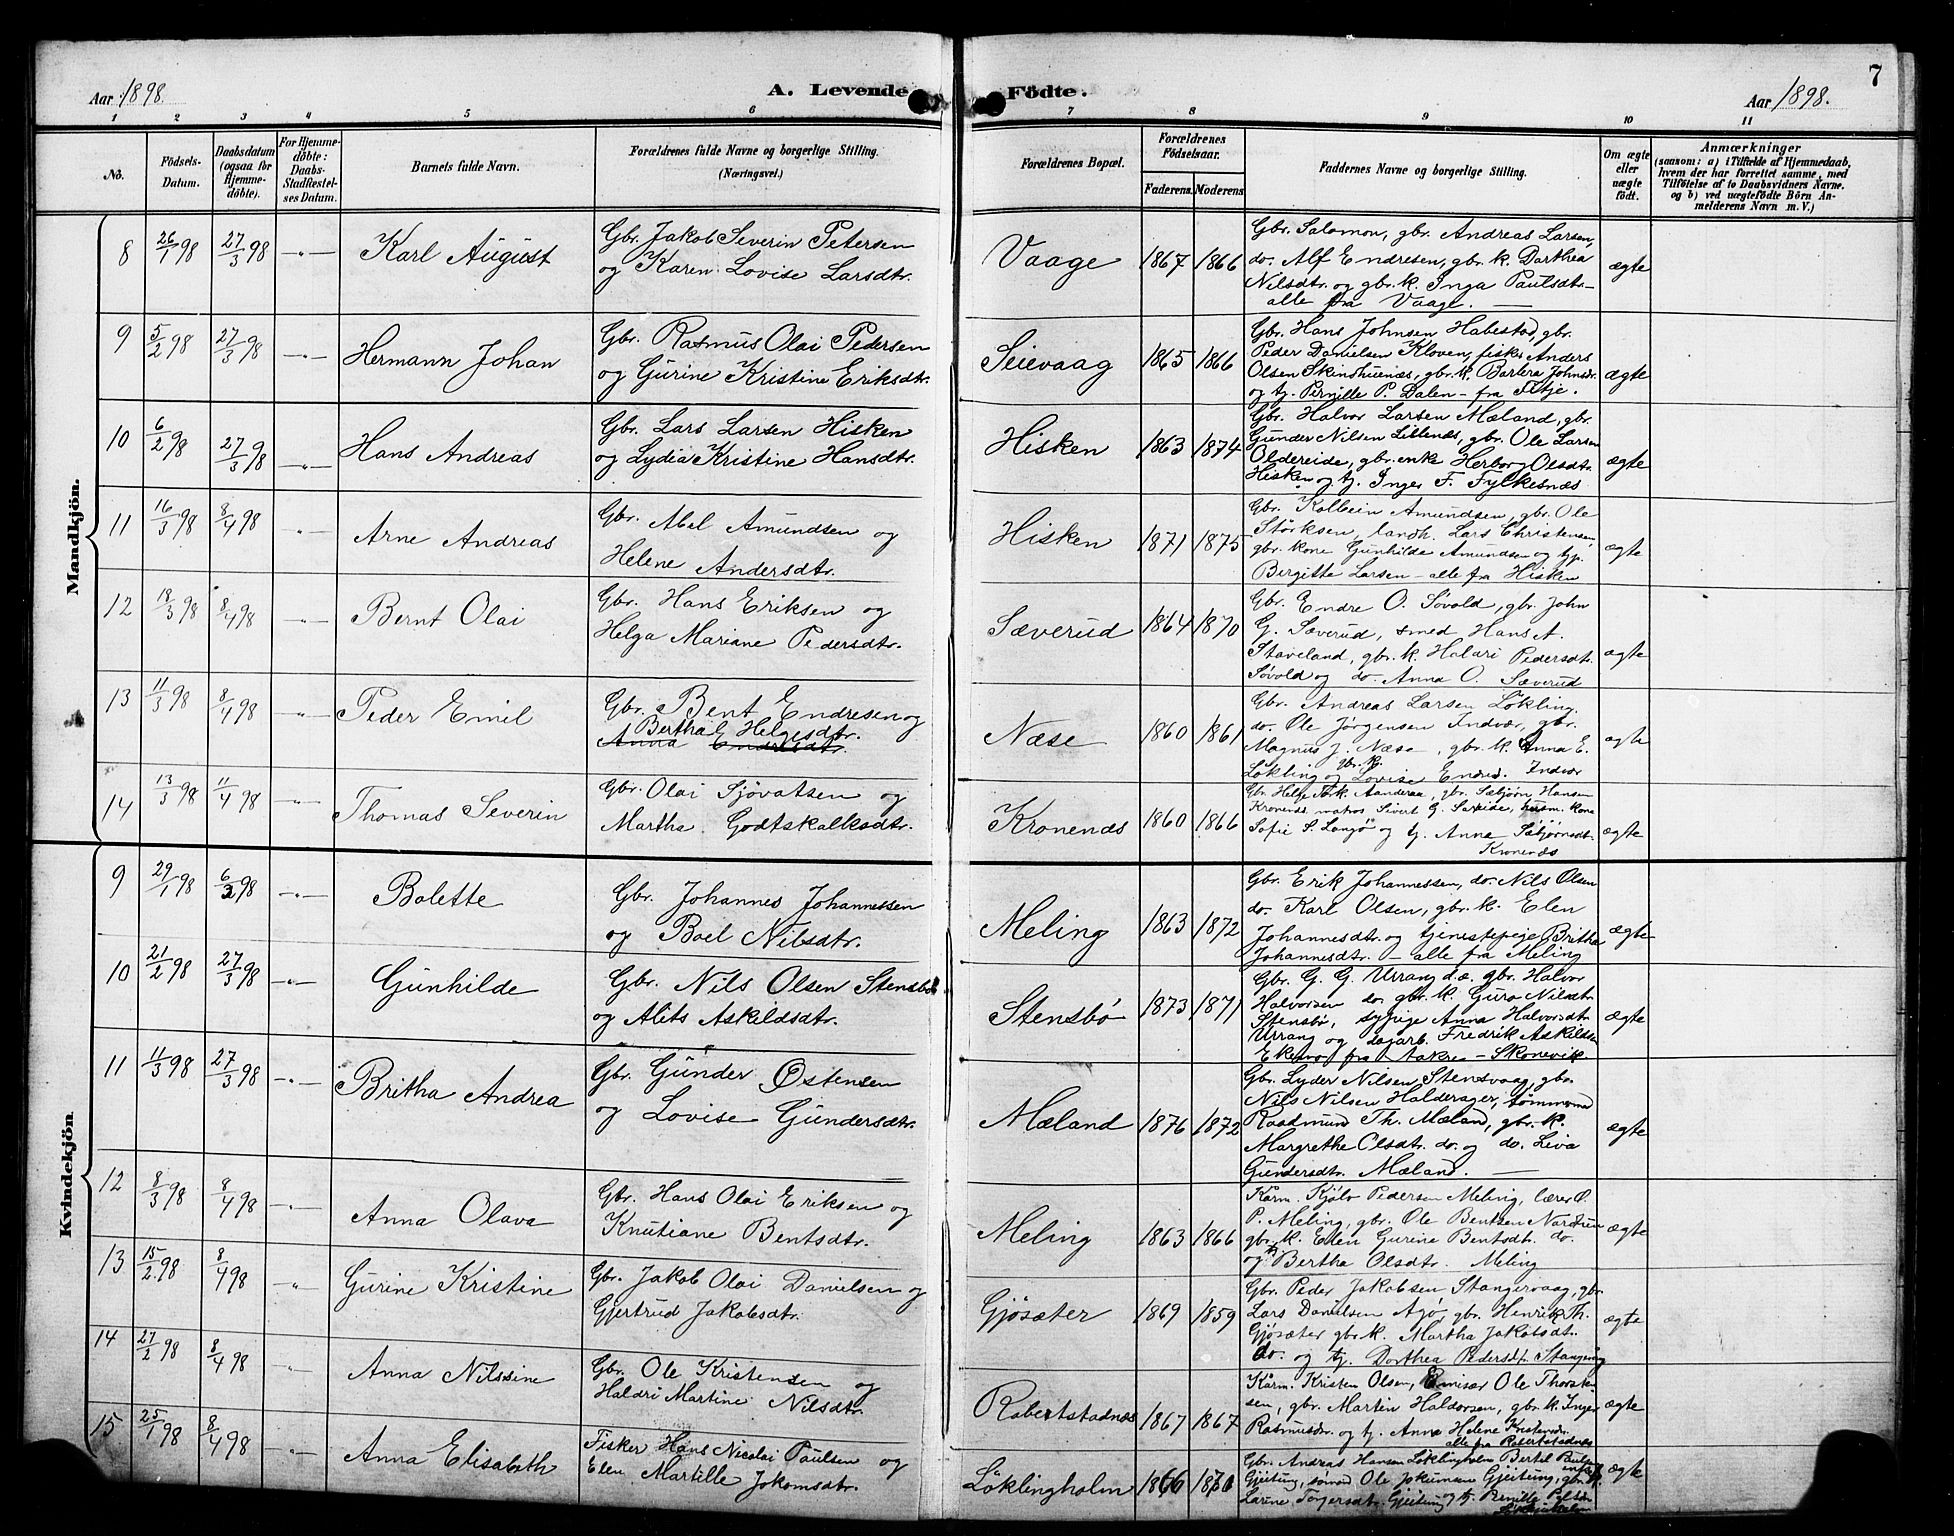 7
Aar 1898.
A. Levende Födte.
Aar 1898.
1 2 3 4 5 6 7 8 9 10 11
No.
Födsels-Datum.
Daabsdatum (ogsaa för Hjemme-döbte).
For Hjemme-döbte: Daabs-Stadfæstel-ses Datum.
Barnets fulde Navn.
Forældrenes fulde Navne og borgerlige Stilling.
(Næringsvei.)
Forældrenes Bopæl.
Forældrenes Födselsaar.
Faderens. Moderens.
Faddernes Navne og borgerlige Stilling.
Om ægte eller uægte födt.
Anmærkninger
(saasom: a) i Tilfælde af Hjemmedaab,
hvem der har forrettet samme, med
Tilföielse af to Daabsvidners Navne.
og b) ved uægtefödte Börn An-
melderens Navn m. V.)
Mandkjön.
8 26/1 98 27/3 98 -"- Karl August
Gbr. Jakob Severin Petersen
og Karen Lovise Larsdtr.
Vaage 1867 1866
Gbr. Salomon, gbr. Andreas Larsen,
do. Alf Endresen, gbr. k. Darthea
Nilsdtr. og gbr. k. Inga Paulsdtr.
alle fra Vaage.
ægte
9 5/2 98 27/3 98 -"- Hermann Johan
Gbr. Rasmus Olai Pedersen
og Gurine Kristine Eriksdtr.
Seievaag 1865 1866
Gbr. Hans Johnsen Habestad, gbr.
Peder Danielsen Kloven, fisker Anders
Olsen Skindhuenæs, gbr. k. Barbra Johnsdr.
og tj. Pernille P. Dalen - fra Fitje.
ægte
10 6/2 98 27/3 98 -"- Hans Andreas
Gbr. Lars Larsen Hisken
og Lydia Kristine Hansdtr.
Hisken 1863 1874
Gbr. Halvor Larsen Mæland, gbr.
Gunder Nilsen Lillenæs, gbr. Ole Larsen
Oldereide, gbr. enke Herborg Olsdtr.
Hisken og tj. Inger F. Fylkesnæs
ægte
11 16/3 98 8/4 98 -"- Arne Andreas
Gbr. Abel Amundsen og
Helene Andersdtr.
Hisken 1871 1875
Gbr. Kolbein Amundsen, gbr. Ole
Störksen, landh. Lars Christensen,
gbr. kone Gunhilde Amundsen og
Bergitte Larsen - alle fra Hisken
ægte
12 18/3 98 8/4 98 -"- Bernt Olai
Gbr. Hans Eriksen og
Helga Mariane Pedersdtr.
Sæverud 1864 1870
Gbr. Endre O. Søvold, gbr. John
G. Sæverud, smed Hans A.
Staveland, gbr. k. Halari Pedersdt.
Søvold og do. Anna O. Sæverud
ægte
13 11/3 98 8/4 98 -"- Peder Emil
Gbr. Bent Endresen og
Bertha Helgesdtr.
Anna Endresdtr.
Næse 1860 1861
Gbr. Andreas Larsen Løkling.
do. Ole Jørgensen Indvær, gbr.
Magnus J. Næse, gbr. k. Anna E.
Løkling og gbr. k. Lovise Endrd. Indvær
ægte
14 13/3 98 11/4 98 -"- Thomas Severin
Gbr. Olai Sjovatsen og
Martha Godtskalksdtr.
Kronenæs 1860 1866
Gbr. Helge Aanderaa, gbr. Sæbjørn Hansen
Kronenæs matros Sivert G. husm. kone
Sofie S. og tj. Anne Sæbjørnsdt.
Kronenæs
ægte
Kvindekjön.
9 29/1 98 6/3 98 -"- Bolette
Gbr. Johannes Johannessen
og Boel Nilsdtr.
Meling 1863 1872
Gbr. Erik Johannessen, do. Nils Olsen
do. Karl Olsen, gbr. k. Elen
Johannesdtr. og tjenestepige Britha
Johannesdtr. - alle fra Meling
ægte
10 21/2 98 27/3 98 -"- Gunhilde
Gbr. Nils Olsen Stensbø
og Alits Askildsdtr.
Stensbø 1873 1871
Gbr. G. G. Urrang d.æ. gbr. Halvor
Halvorsen do. gbr. k. Guro Nilsdtr.
Stensbø, sypige Anna Halvorsdtr.
Urrang og dagarb. Fredrik Askildsen
fra Aakre - Skonevik
ægte
11 11/3 98 27/3 98 -"- Britha Andrea
Gbr. Gunder Østensen
og Lovise Gundersdtr.
Mæland 1876 1872
Gbr. Lyder Nilsen Stensvaag, gbr.
Nils Nilsen Haldorager, tømmermd
Raadmund Th. Mæland, gbr. k.
Margrethe Olsdtr. do. og do. Liva
Gundersdtr. Mæland.
ægte
12 8/3 98 8/4 98 -"- Anna Olava
Gbr. Hans Olai Eriksen og
Knutiane Bentsdtr.
Meling 1863 1866
Kårm. Kjølv Pedersen Meling, lærer O.
P. Meling, gbr. Ole Bentsen
gbr. k. Elen Gurine Bentsdt. do.
og Bertha Olsdtr. Meling
ægte
13 15/2 98 8/4 98 -"- Gurine Kristine
Gbr. Jakob Olai Danielsen og
Gjertrud Jakobsdtr.
Gjøsæter 1869 1859
Gbr. Peder Jakobsen Stangervaag, gbr.
Lars Danielsen Agø, gbr. Henrik Th.
Gjøsæter gbr. k. Martha Jakobsdt.
do. og tj. Dorthea Pedersdt.
ægte
14 27/2 98 8/4 98 -"- Anna Nilssine
Gbr. Ole Kristensen og
Haldri Martine Nilsdtr.
Robertstadnæs 1867 1867
Kårm. Kristen Olsen, Emisær Ole Thorsten-
sen, gbr. Martin Haldorsen, gbr. k. Inger
Rasmusdr. og tj. Anna Helene
alle fra Robertstadnæs
ægte
15 25/1 98 8/4 98 -"- Anna Elisabeth
Fisker Hans Nicolai Paulsen og
Elen Martille Jokomsdtr.
Løklingholm 1866
Gbr. Andreas Hansen Løklingholm Bertel
Gjeitung, Ole Jokumsen Gjeitung, gbr.
Larine Torgersdtr. Gjeitung og tj. Pernille
ægte